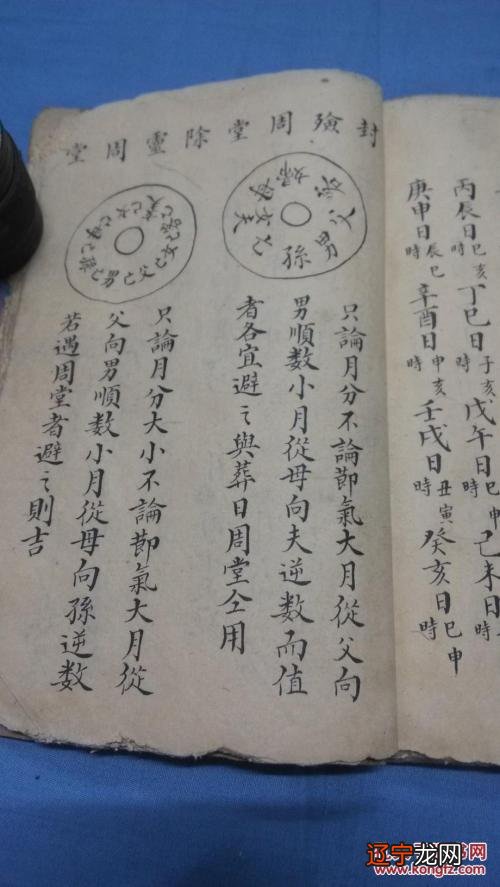 丙辰日巳亥時丁巳日子亥時戊午日巳申時己未日時
庚申日辰巳時辛酉日申亥時壬戌日丑寅時癸亥日巳申時
封殮周堂除靈周堂
父男孫亡女夫母婦客
只論月分不論節氣大月從父向
男順數小月從母向夫逆數而值
者各宜避之與葬日周堂仝用
父亡男亡孫亡母亡女亡
只論月分大小不論節氣大月從
父向男順數小月從母向孫逆數
若遇周堂者避之則吉
辽宁龙网
www.kongfz.com